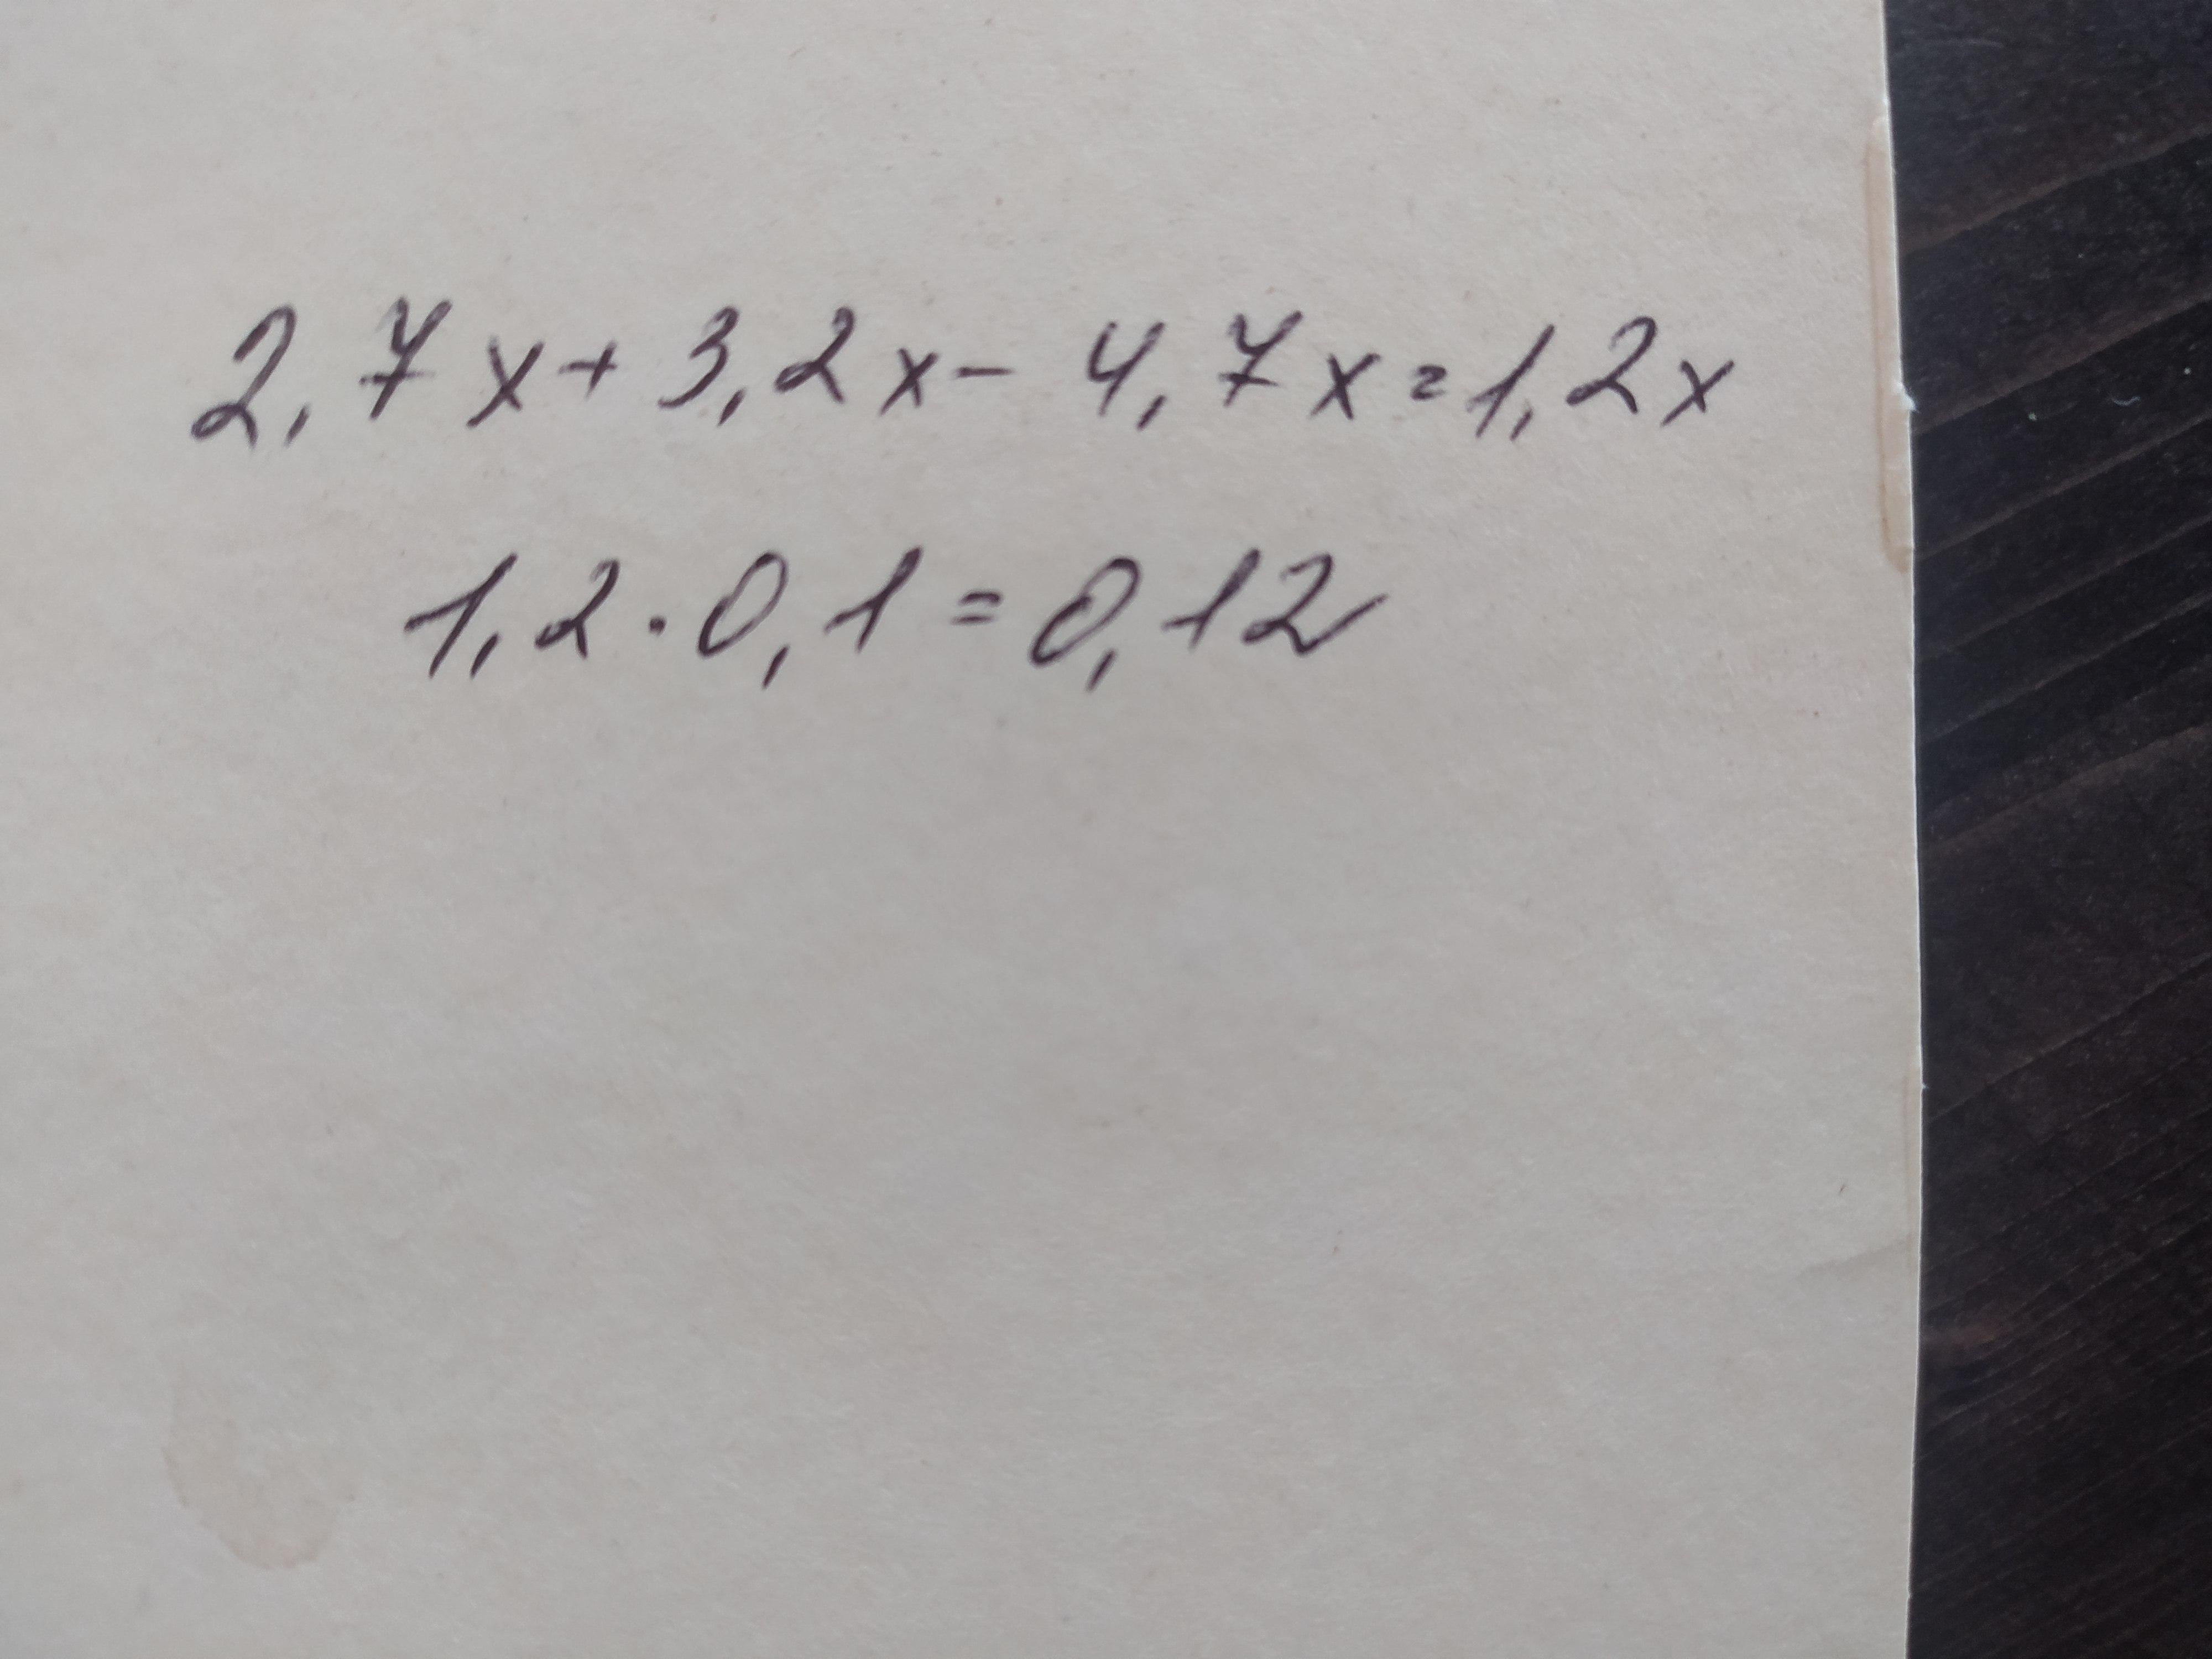 2,7x+3,2x-4,7x=1,2x
1,2·0,1=0,12